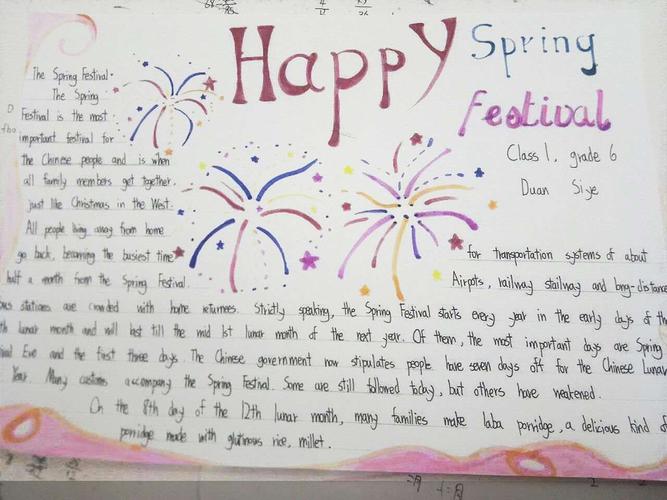 Happy Spring
Festival
Class 1, grade 6
Duan Siye
The Spring Festival
The Spring
Festival is the most
important festival for
the Chinese people and is when
all family members get together,
just like Christmas in the West.
All people living away from home
go back, becoming the busiest time
for transportation systems of about
half a month from the Spring Festival.
Airpots, railway stailway and long-distance
bus stations are crowded with home returnees. Strictly speaking, the Spring Festival starts every year in the early days of the
lunar month and will last till the mid 1st lunar month of the next year. Of them, the most important days are Spring
Eve and the first three days. The Chinese government now stipulates people have seven days off for the Chinese Lunar
Year. Many customs accompany the Spring Festival. Some are still followed today, but others have weakened.
On the 8th day of the 12th lunar month, many families make laba porridge, a delicious kind of
porridge made with glutinous rice, millet.